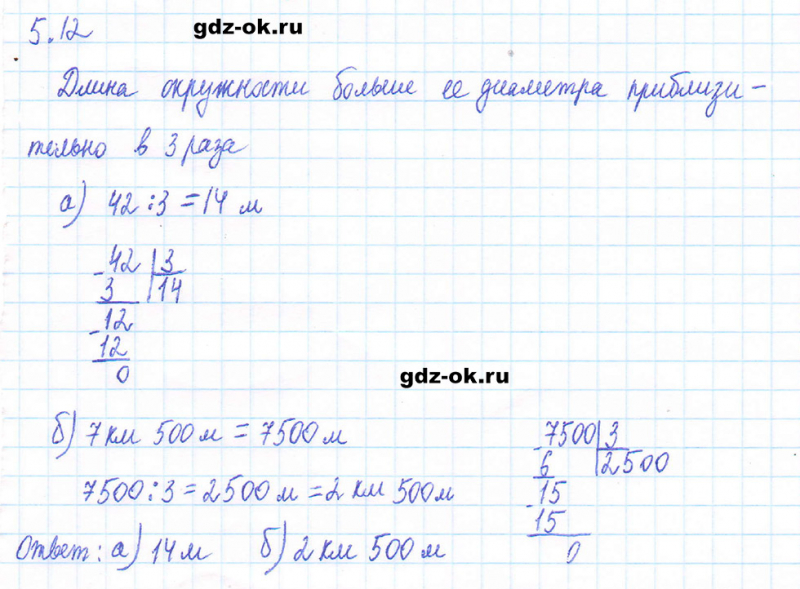 5.12
gdz-ok.ru
Длина окружности больше ее диаметра приблизи-
тельно в 3 раза
а) 42 : 3 = 14 м
- 42 | 3
3 | 14
- 12
12
0
gdz-ok.ru
б) 7 км 500 м = 7500 м
7500 : 3 = 2500 м = 2 км 500 м
- 7500 | 3
6 | 2500
- 15
15
0
Ответ: а) 14 м б) 2 км 500 м